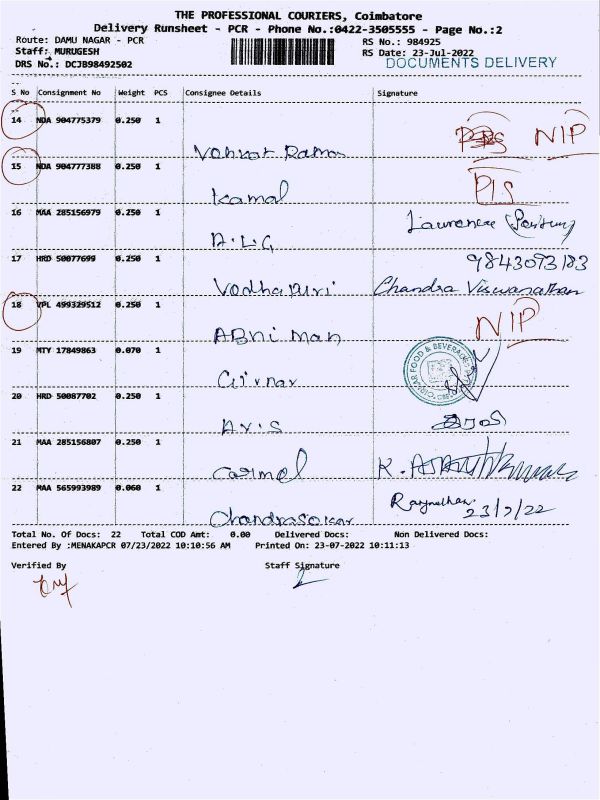 THE PROFESSIONAL COURIERS, Coimbatore
Delivery Runsheet - PCR - Phone No.:0422-3505555 - Page No.:2
Route: DAMU NAGAR - PCR
RS No.: 984925
Staff: MURUGESH
RS Date: 23-Jul-2022
DRS No.: DCJB98492502
DOCUMENTS DELIVERY
S No Consignment No Weight PCS Consignee Details Signature
14 NDA 904775379 0.250 1
NIP
Venkat Raman
15 NDA 904777388 0.250 1
PIS
Kamal
16 MAA 285156979 0.250 1
Lawrence
A.L.G
17 HRD 50077699 0.250 1
9843093183
Vodhapuri Chandra Viswanathan
18 VPL 499329512 0.250 1
NIP
ABhiMan
19 MTY 17849863 0.070 1
Girnar
20 HRD 50087702 0.250 1
Axis
21 MAA 285156807 0.250 1
Carmel
22 MAA 565993989 0.060 1
23/7/22
Chandrasekar
Total No. Of Docs: 22 Total COD Amt: 0.00 Delivered Docs: Non Delivered Docs:
Entered By :MENAKAPCR 07/23/2022 10:10:56 AM Printed On: 23-07-2022 10:11:13
Verified By Staff Signature